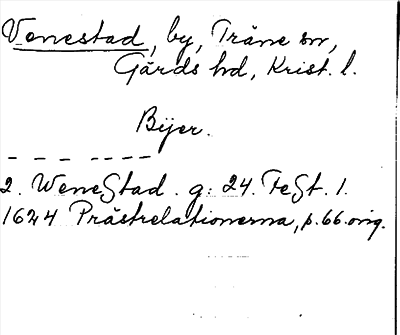 Venestad, by, Träne sn,
Gärds hd, Krist. l.
Bijer.
– – – – – – –
2. Wenestad. g: 24. Fest. 1.
1624 Prästrelationerna, p. 66. orig.